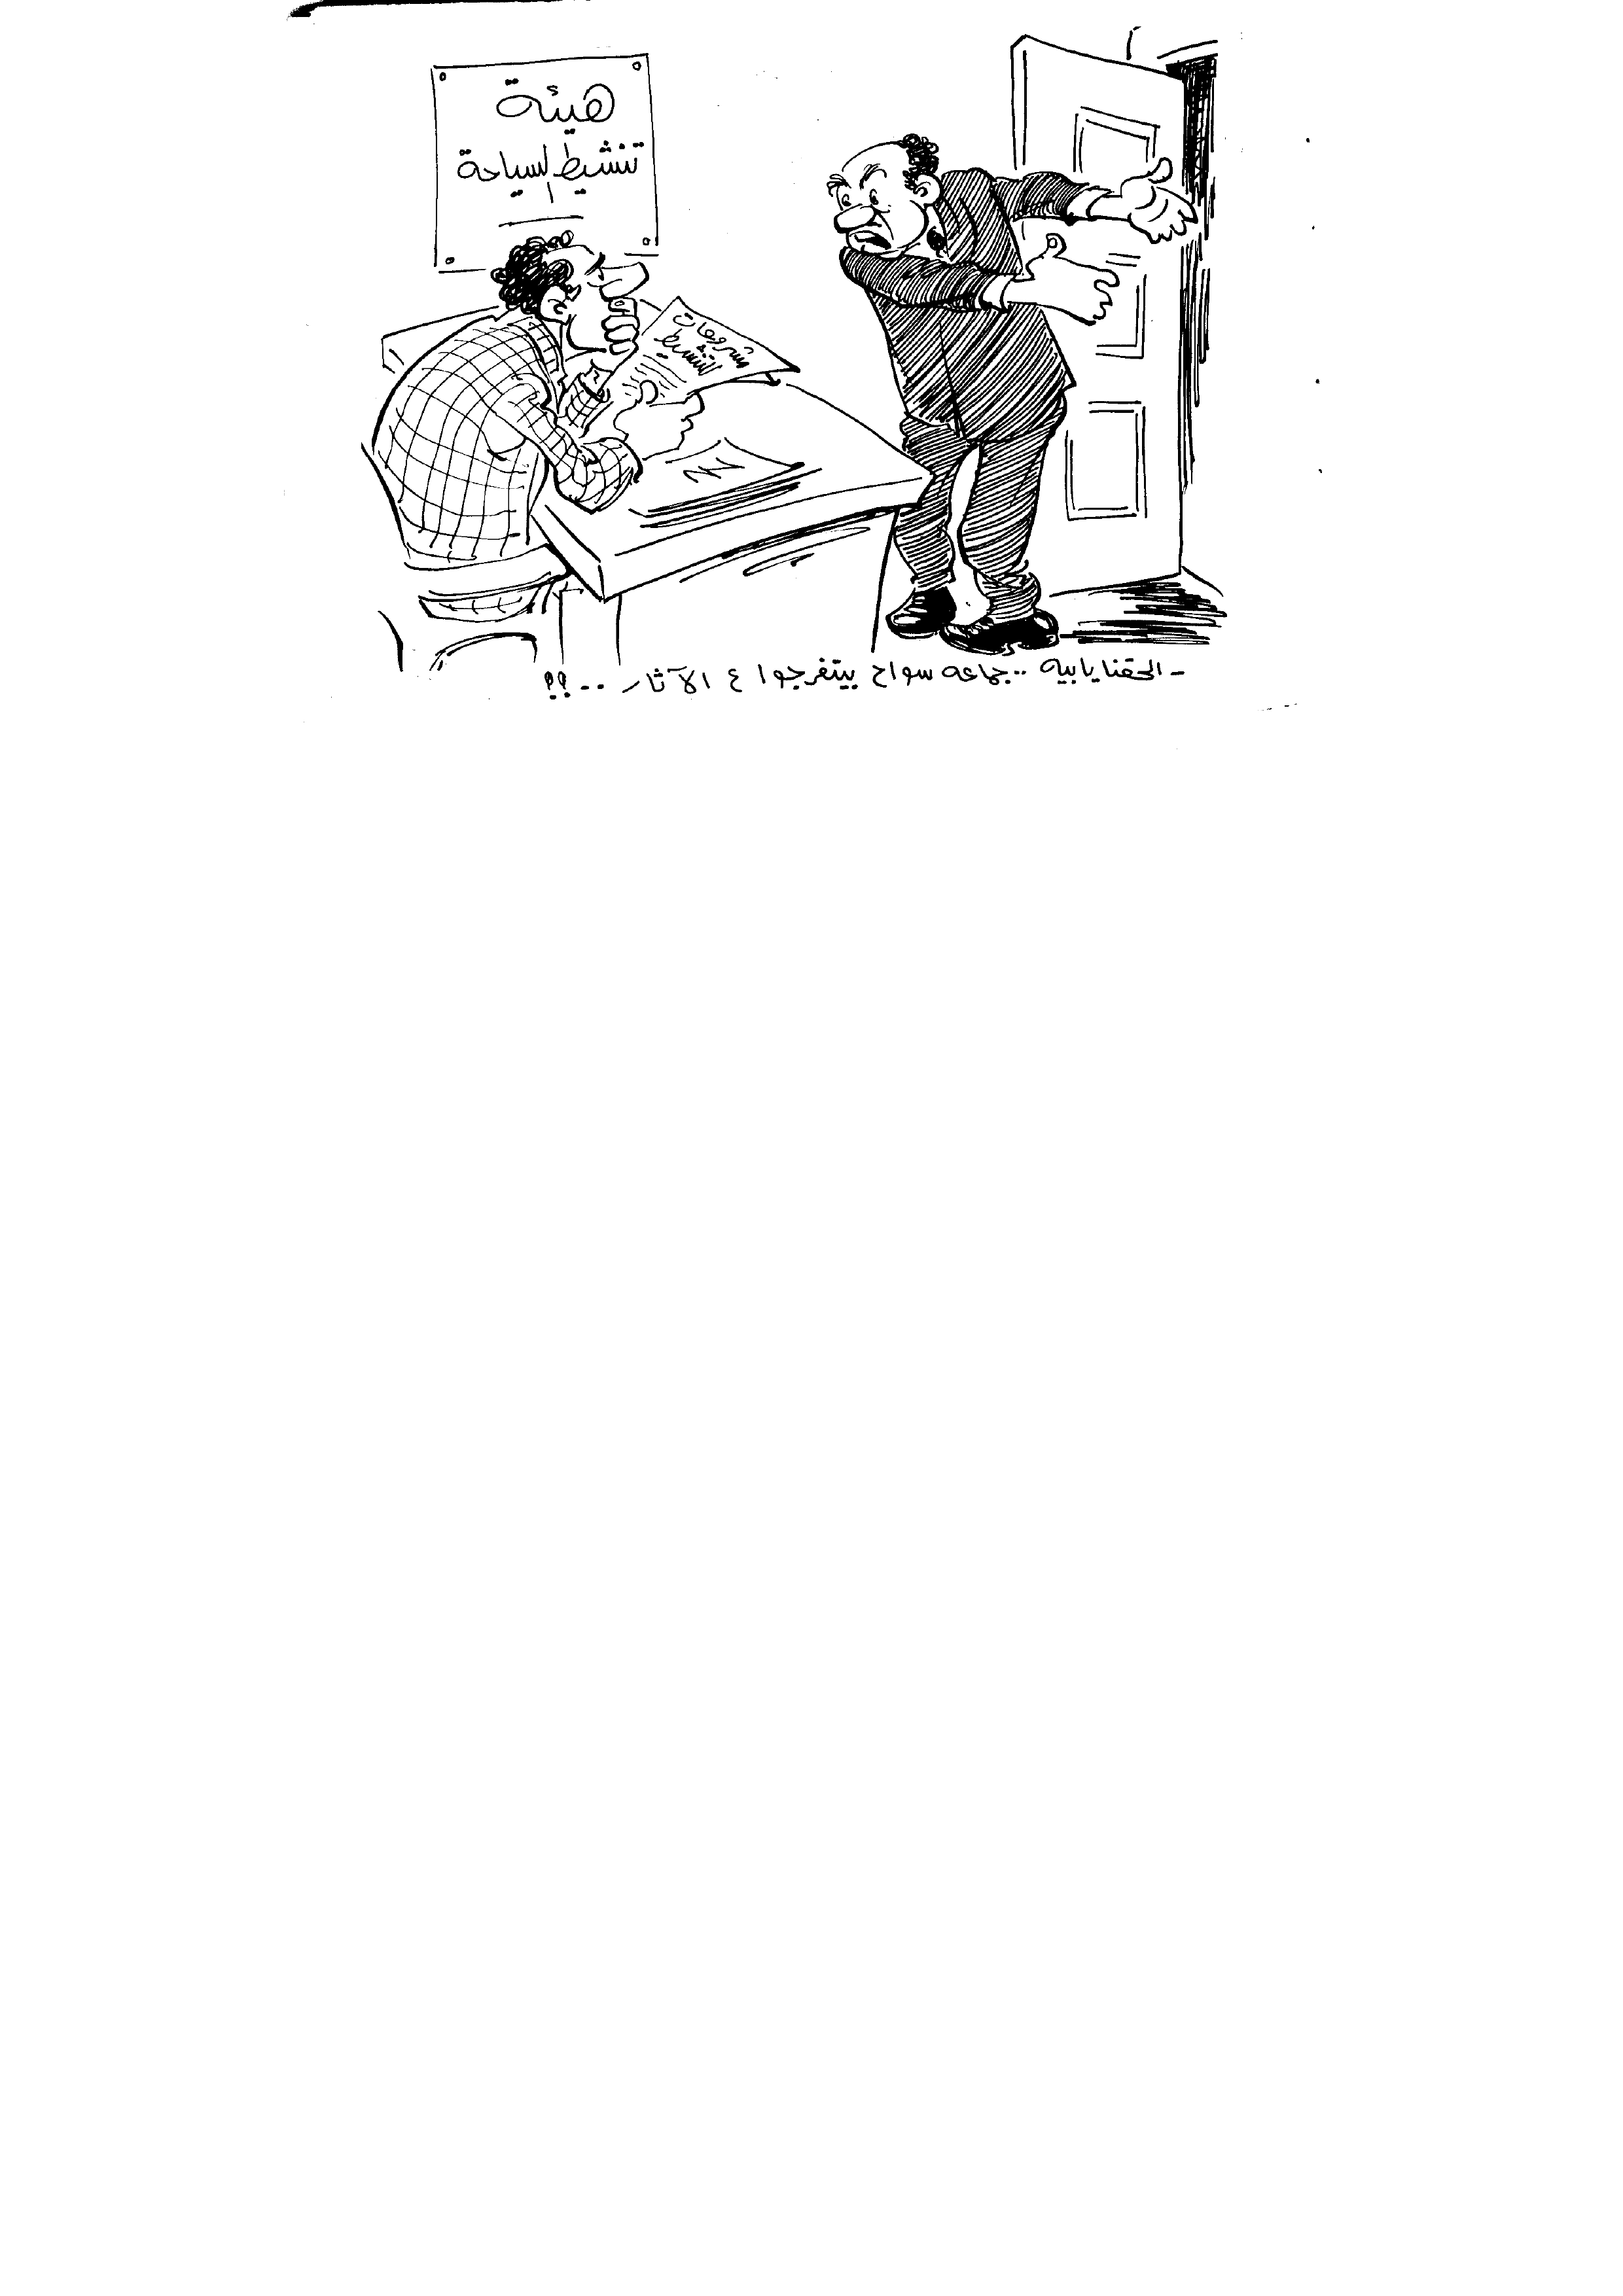 هيئة
تنشيط السياحة
مشروعات
للتنشيط
- الحقنا يا بيه .. جماعه سواح بيتفرجوا ع الآثار .. ؟؟!